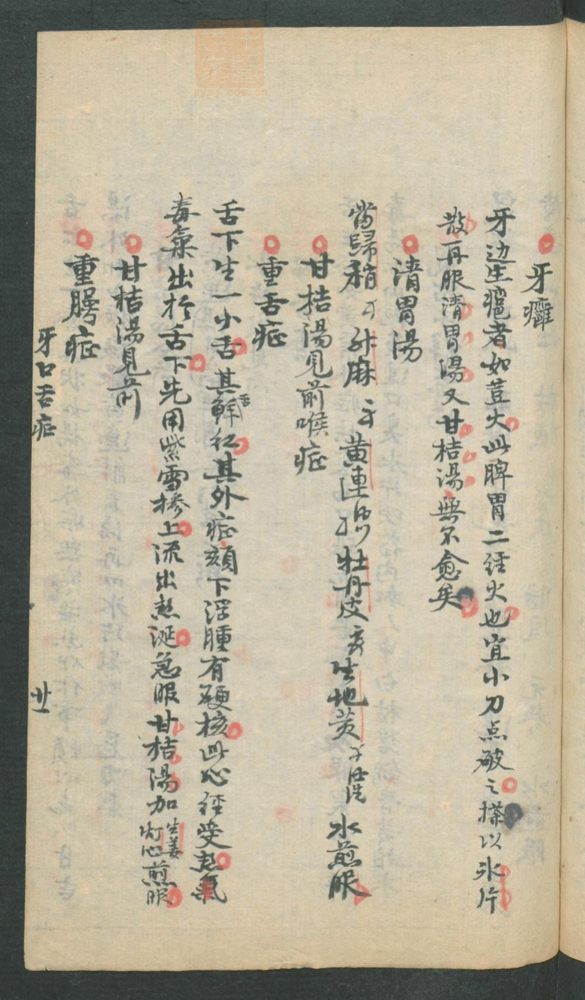 牙癰
牙边生癰者如荳大此脾胃二経火也宜小刀点破之搽以氷片
散再服清胃湯又甘桔湯無不愈矣
清胃湯
當歸稍 升麻 黄連 牡丹皮 生地黄 水煎服
甘桔湯見前喉症
重舌症
舌下生一小舌其舌鮮红其外症頦下浮腫有硬核此心経受热氣
毒氣出於舌下先用紫雪摻上流出热涎急服甘桔陽加生姜灯心煎服
甘桔湯見前
重腭症
牙口舌症
廿一